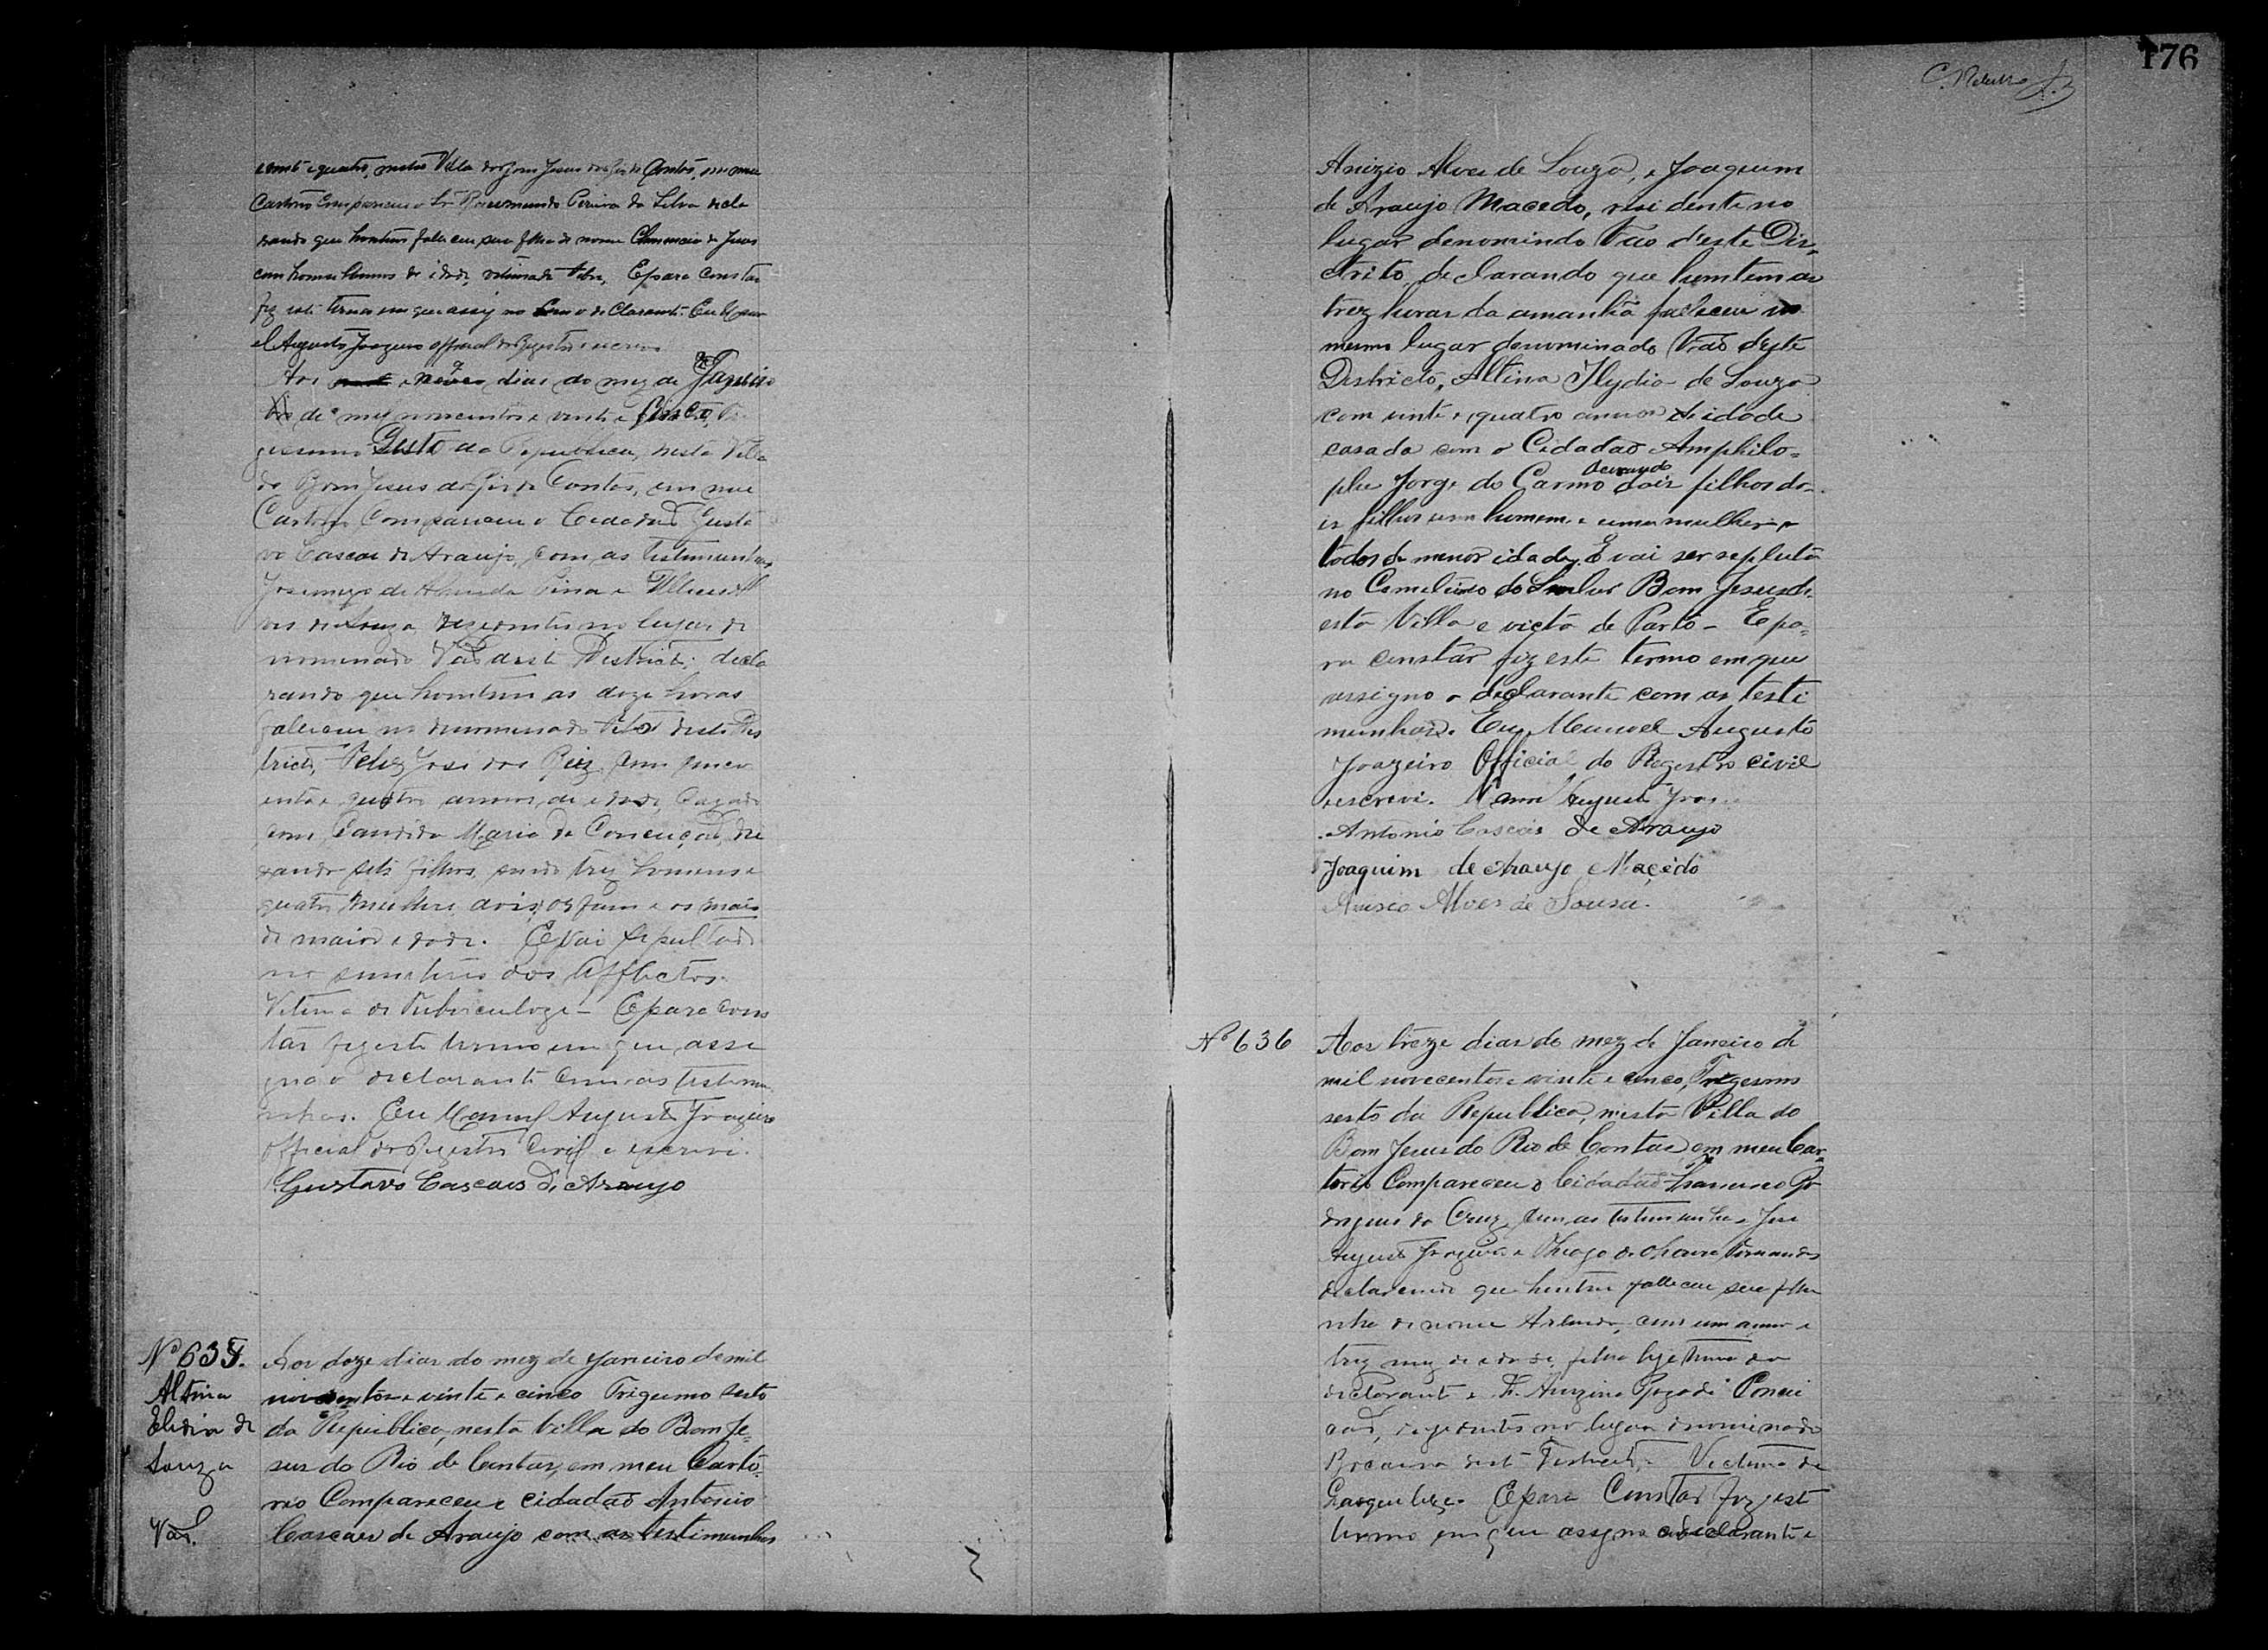 176
Cartorio Compareceu o Sr. Raimundo Pereira da Silva decla
rando que hontem faleceu sua filha de nome Clemencia de Jesus
de idade, vitima de febre, E para constar
fiz este termo em que assigno com o declarante. Eu Mano
el Augusto Joazeiro official do Registro escrevi
Aos nove dias do mez de Janeiro
de mil novecentos e vinte e cinco, Tri
gesimo Sesto da Republica, nesta Villa
do Bom Jesus do Rio de Contas, em meu
Cartorio Compareceu o Cidadão Gusta
vo Cascaes de Araujo, com as testimunhas
de Almeida Pina e
de Souza rezidentes no lugar de
nominado Vão deste Districto; decla
rando que hontem as doze horas
faleceu no denominado Vão deste Dis
tricto, Felis José dos Reiz com cinco
enta e quatro annos de idade, Cazado
com Candida Maria da Conceição, dei
xando sete filhos, sendo trez homens e
quatro mulheres, dois orfams e os mais
de maior idade. E vai sepultado
no simiterio dos Afflictos.
Vitima de Tuberculoze - E para cons
tar fiz este termo em que assi
gna o declarante com as testemu
nhas. Eu Manoel Augusto Joazeiro
Official do Registro Civil o escrevi.
Gustavo Cascaes de Araujo
Nº 635.
Altina
Elidia de
Souza
Vão.
Aos doze dias do mez de Janeiro de mil
novecentos e vinte e cinco Trigesimo sesto
da Republica, nesta Villa do Bom Je-
sus do Rio de Contas, em meu Carto-
rio Compareceu o cidadão Antonio
Cascaes de Araujo com as testimunhas
Anizio Alves de Souza, e Joaquim
de Araujo Macedo, residente no
lugar denomindo Vão d'este Dis-
ctrito, declarando que homtem as
trez horas da amanhã faleceu no
mesmo lugar denominado Vão deste
Districto, Altina Ilydia de Souza
com vinte e quatro annos de idade
casada com o Cidadão Amphilo-
phe Jorge do Carmo deixando dois filhos do-
is filhos um homem e uma mulher e
todos de menor idade. E vai ser sepluta
no Cemeterio do Senhor Bom Jesus d-
esta Villa e victa de Parto - E pa-
ra constar fiz este termo em que
assigno o declarante com as testi
munhas. Eu Manoel Augusto
Joazeiro Official do Registro civil
escrevi. Manoel Augusto Joaz
Antonio Cascais de Araujo
Joaquim de Araujo Macêdo
Anisio Alves de Sousa.
Nº 636
Aos treze dias do mez de Janeiro de
mil novecentos e vinte e cinco, Trigesimo
sesto da Republica, nesta Villa do
Bom Jesus do Rio de Contas, em meu Car-
torio Compareceu o Cidadão Francisco Ro
drigues da Cruz, com as testimunhas José
Augusto Joazeiro e Thiago de Fernandes
declarando que hontem falleceu seu filhi
nho de nome Arlindo, com um anno e
trez mez de idade, filho legitimo do
declarante e D. Roza da Concei
ção, rezidentes no lugar denominado
deste Districto. Victima de
E para Constar fiz este
termo em que assigna o declarante e